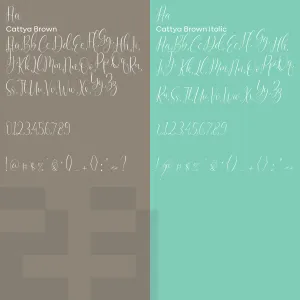 Aa
Cattya Brown
Aa Bb Cc Dd Ee Ff Gg Hh Ii
Jj Kk Ll Mm Nn Oo Pp Qq Rr
Ss Tt Uu Vv Ww Xx Yy Zz
0123456789
Aa
Cattya Brown Italic
Aa Bb Cc Dd Ee Ff Gg Hh Ii
Jj Kk Ll Mm Nn Oo Pp Qq
Rr Ss Tt Uu Vv Ww Xx Yy Zz
0123456789